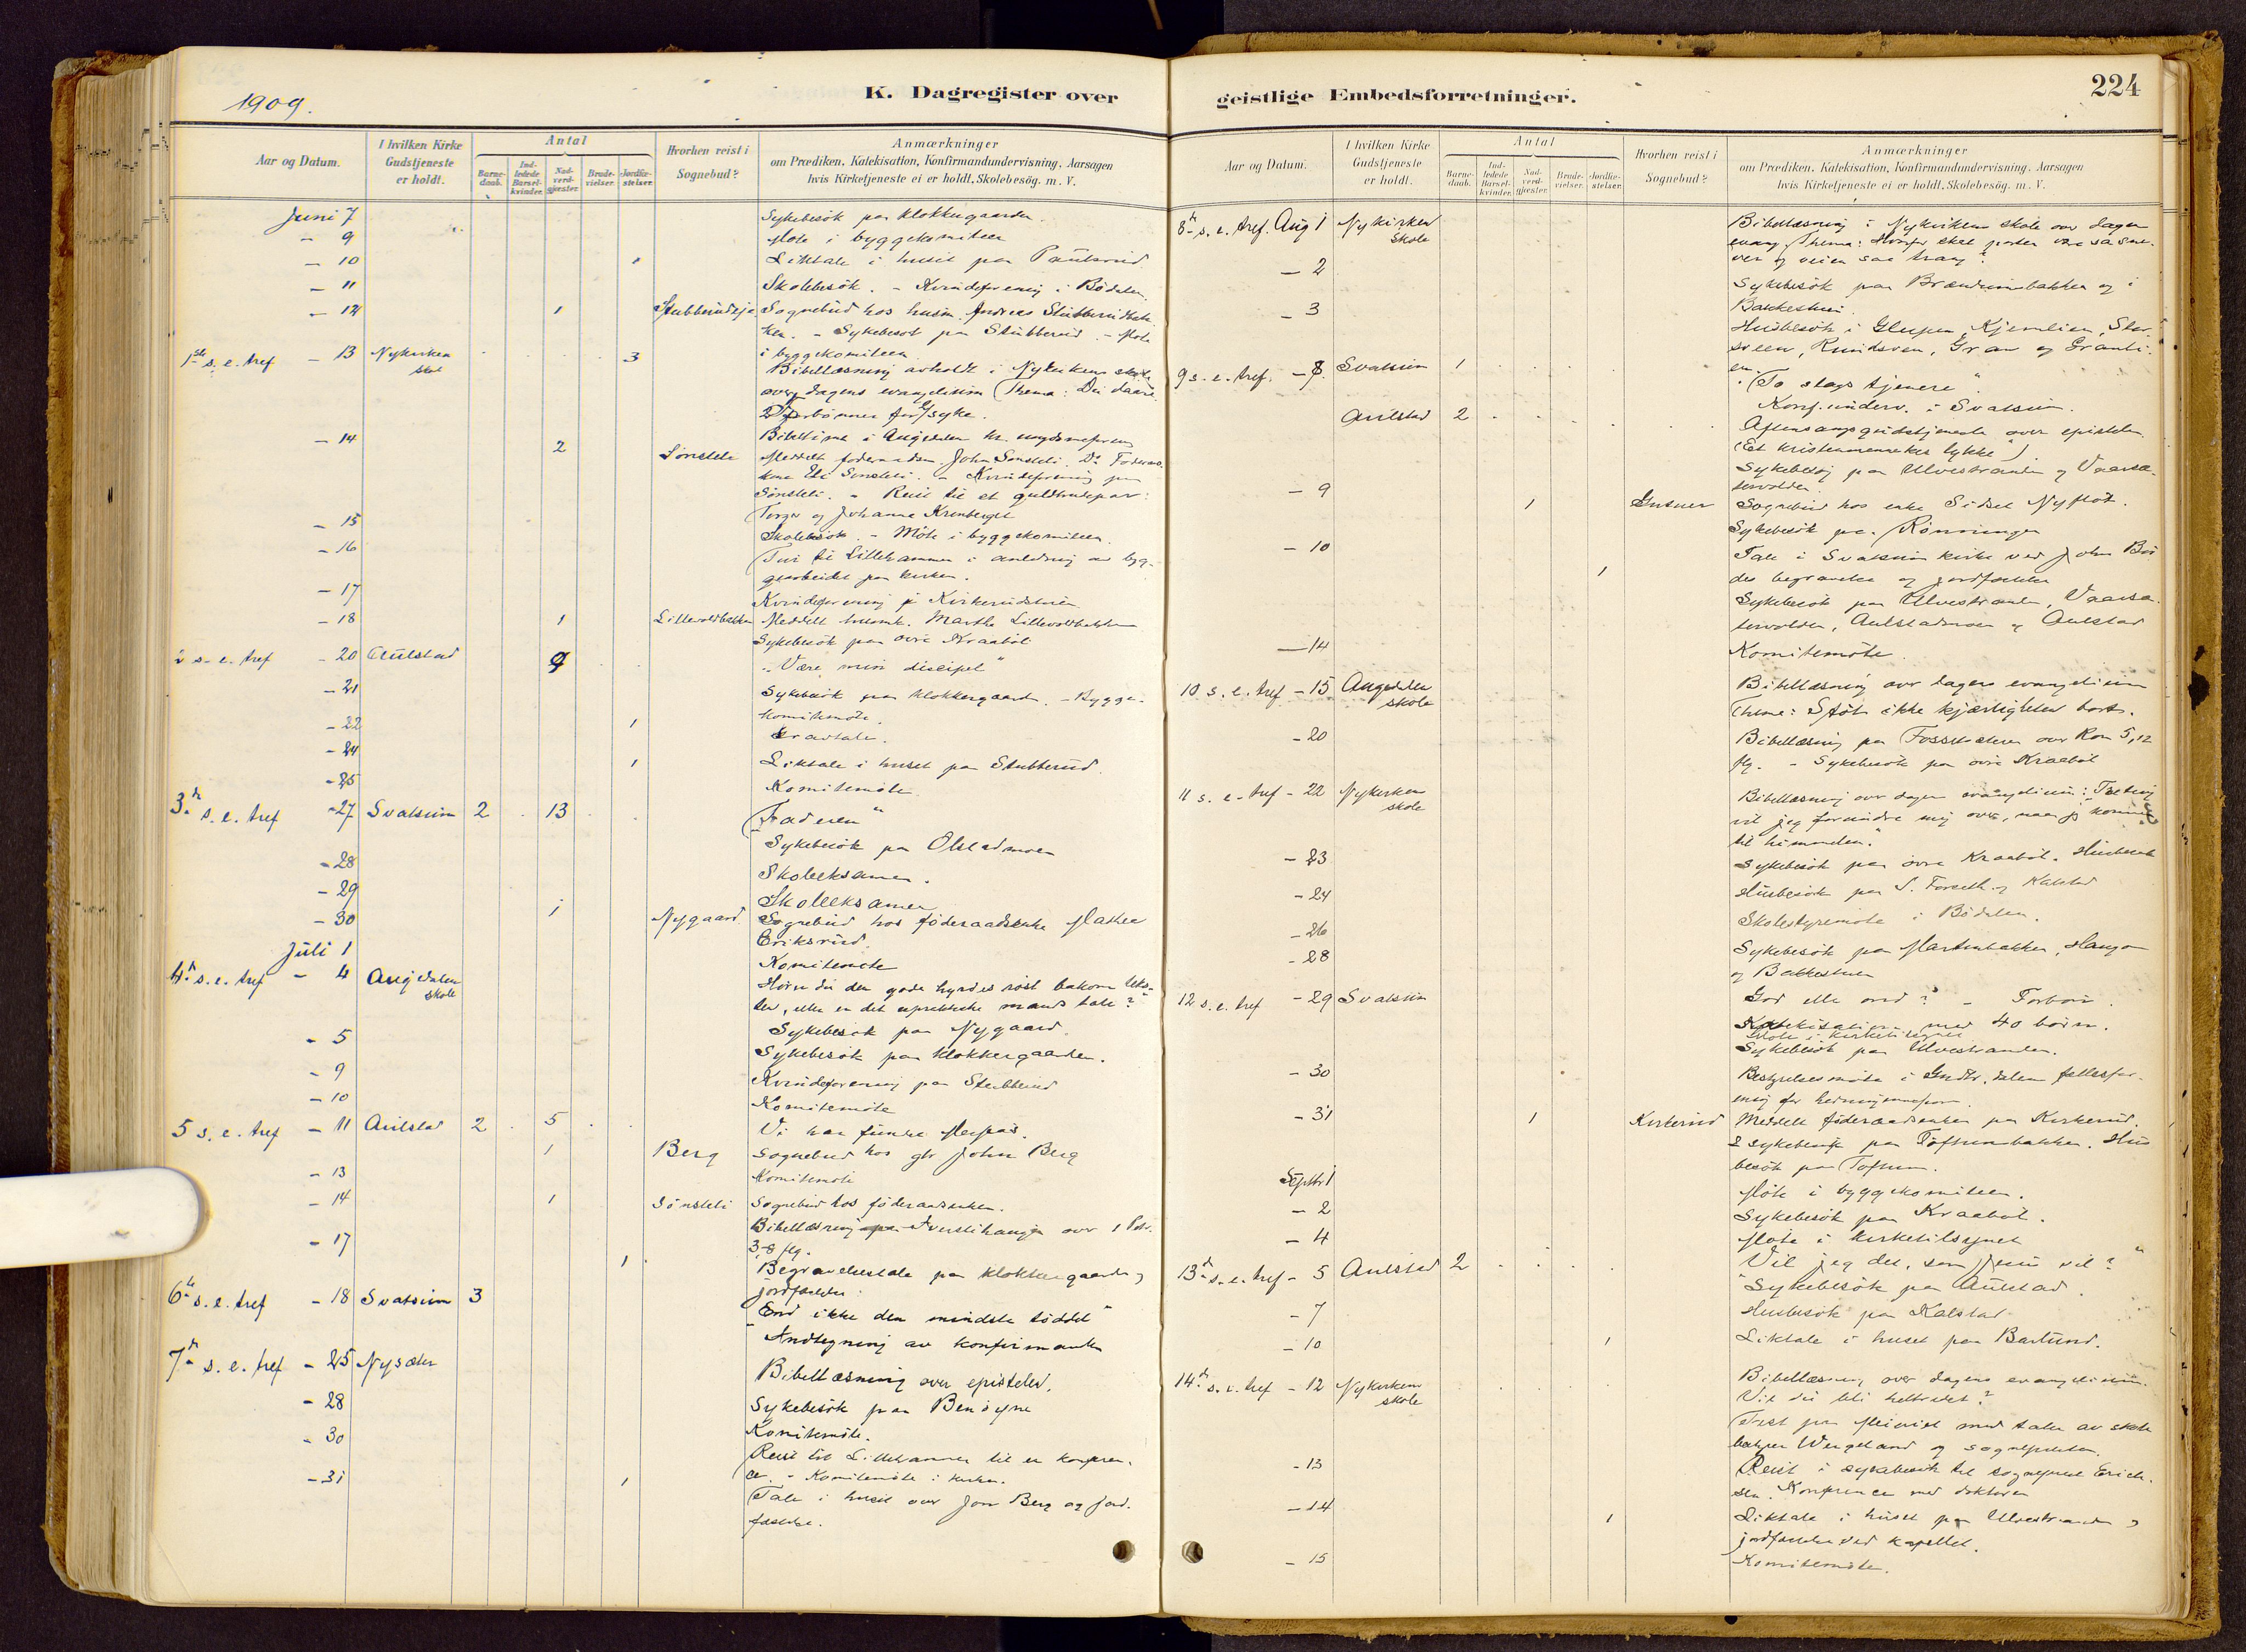 1909.
K. Dagregister over
Aar og Datum.
I hvilken Kirke Gudstjeneste er holdt.
Antal
Barnedaab.
Indledede Barselkvinder.
Nadverdgjester.
Brudevielser.
Jordfæstelser.
Hvorhen reist i Sognebud?
Anmærkninger
om Prædiken, Katekisation, Konfirmandundervisning, Aarsagen
hvis Kirketjeneste ei er holdt, Skolebesög. m. V.
Juni 7 Sykebesök paa Klokkergaarden.
- 9 Møte i byggekomiteen
- 10 1 Liktale i huset paa Paulsrud
- 11 Skolebesök. - Kvindeforening i Bödalen.
- 12 1 Sognebud hos husm. Andreas Stubberudbak-
ken. - Sykebesök paa Stubberud. - Møte
i byggekomiteen
1ste s. e. tref - 13 Nykirken skole 3 Bibellæsning avholdt i Nykirken skole
over dagens evangelium (Thema: Du daare.
2 forbønner for syke.
- 14 2 Sönsteli
Sönsteli. - Reist til et guldbrudepar:
Torger og Johanne Krenberget
- 15 Skolebesök. - Möte i byggekomiteen.
- 16 Tur til Lillehammer i anledning av byg-
gearbeidet paa kirken.
- 17 Kvindeforening på Kirkerudstuen
- 18 1 Lillevoldbakken Meddelt husmk. Marthe Lillevoldbakken
Sykebesök paa övre Kraaböl
2 s. e. tref - 20 Aulstad 9 "Være min discipel"
- 21 Sykebesök paa Klokkergaarden. - Bygge-
komitemöte.
- 22 1 Gravtale.
- 24 1 Liktale i huset paa Stubberud.
- 25 Komitemöte
3de s. e. tref - 27 Svatsum 2 13 "Faderen"
Sykebesök paa Olstadmoen
- 28 Skoleeksamen.
- 29 Skoleeksamen
- 30 1 Nygaard Sognebud hos föderaadsenke Mathea
Eriksrud.
Juli 1 Komitemöte
4de s. e. tref - 4 Augedalen skole Hörer du den gode hyrdes röst bakom teks-
ten, eller er det uprektiske mands tale?
Sykebesök paa Nygaard.
- 5 Sykebesök paa Klokkergaarden.
- 9 Kvindeforening paa Stubberud
- 10 Komitemöte
5 s. e. tref - 11 Aulstad 2 5 Vi har fundet Messias.
1 Berg Sognebud hos gbr John Berg
- 13 Komitemöte
- 14 1 Sönsteli Sognebud hos föderaadsenken.
Bibellæsning over 1 Pet.
3,8 flg.
- 17 1 Begravelsestale paa Klokkergaarden og
jordfæstelse.
6te s. e. tref - 18 Svatsum 3 "End ikke den mindste töddel"
Andtegning av konfirmanter
7de s. e. tref - 25 Nysæter Bibellæsning over epistelen.
- 28 Sykebesök paa Benöyne
- 30 Komitemöte.
Reist til Lillehammer til en konferen-
ce. - Komitemöte i kirken.
- 31 1 Tale i huset over Jon Berg og jord-
fæstelse.
geistlige Embedsforretninger.
224
Aar og Datum.
I hvilken Kirke Gudstjeneste er holdt.
Antal
Barnedaab.
Indledede Barselkvinder.
Nadverdgjester.
Brudevielser.
Jordfæstelser.
Hvorhen reist i Sognebud?
Anmærkninger
om Prædiken, Katekisation, Konfirmandundervisning, Aarsagen
hvis Kirketjeneste ei er holdt, Skolebesög. m. V.
8de s. e. tref. Aug 1 Nykirken skole Bibellæsning i Nykirken skole over dagens
evang. Thema: Hvorfor skal porten være saa sne-
ver og veien saa trang?
- 2 Sykebesök paa Brændumbakken og i
Bakkestuen
- 3 Husbesök i Glupen, Kjemlien,
Rundsveen, Gran og Granli-
en.
9 s. e. tref. - 8 Svatsum 1 "To slags tjenere".
Konf. underv. i Svatsum.
Aulstad 2 Aftensangsgudstjeneste over epistelen.
(Et kristenmenneskes lykke")
Sykebesög paa Ulvestranden og
- 9 1 Sognebud hos enke Sidsel Nyflöt.
Sykebesök paa Rönningen
- 10 1 Tale i Svatsum kirke ved John Bö-
des begravelse og jordfæstelse
Sykebesök paa Ulvestranden,
Aulstadmoen og Aulstad
- 14 Komitemöte.
10 s. e. tref - 15 Augedalen skole Bibellæsning over dagens evangelium
Thema: Stöt ikke kjærligheten bort.
- 20 Bibellæsning paa Fossesæteren over Rom 5,12
flg. - Sykebesök paa övre Kraaböl
11 s. e. tref - 22 Nykirken skole Bibellæsning over dagens evangelium: Tre ting
vil jeg forundre mig over, naar jeg kommer
til himmelen."
- 23 Sykebesök paa övre Kraaböl. Husbesök
- 24 Husbesök paa S. Forseth og Kalstad
- 26 Skolestyremöte i Bödalen.
- 28 Sykebesök paa Martinbakken, Haugen
og Bakkestuen
12 s. e. tref - 29 Svatsum God eller ond? - Forbön.
Katekisation med 40 börn.
Möte i kirketilsynet
Sykebesök paa Ulvestranden.
- 30 Bestyrelsesmöte i Gudbr.dalens fællesfor-
ening for hedningemissionen.
- 31 1 Kirkerud Meddelt föderaadsenken paa Kirkerud.
2 sykebesök paa Töftumbakken. Hus-
besök paa Toftum.
Septbr 1 Möte i byggekomiteen.
- 2 Sykebesök paa Kraaböl.
- 4 Möte i kirketilsynet
13de s. e. tref - 5 Aulstad 2 "Vil jeg det, som Jesus vil?"
Sykebesök paa Aulstad.
- 7 Husbesök paa Kalstad
- 10 1 Liktale i huset paa Barlund.
14de s. e. tref - 12 Nykirken skole Bibellæsning over dagens evangelium.
Vil du bli helbredet?
Fest paa med tale av skole-
bestyrer Wergeland og sognepresten.
- 13 Reist i sykebesök til sogneprest Erich-
sen. Konference med doktoren
- 14 1 Liktale i huset paa Ulvestranden og
jordfæstelse ved kapellet.
- 15 Komitemöte.